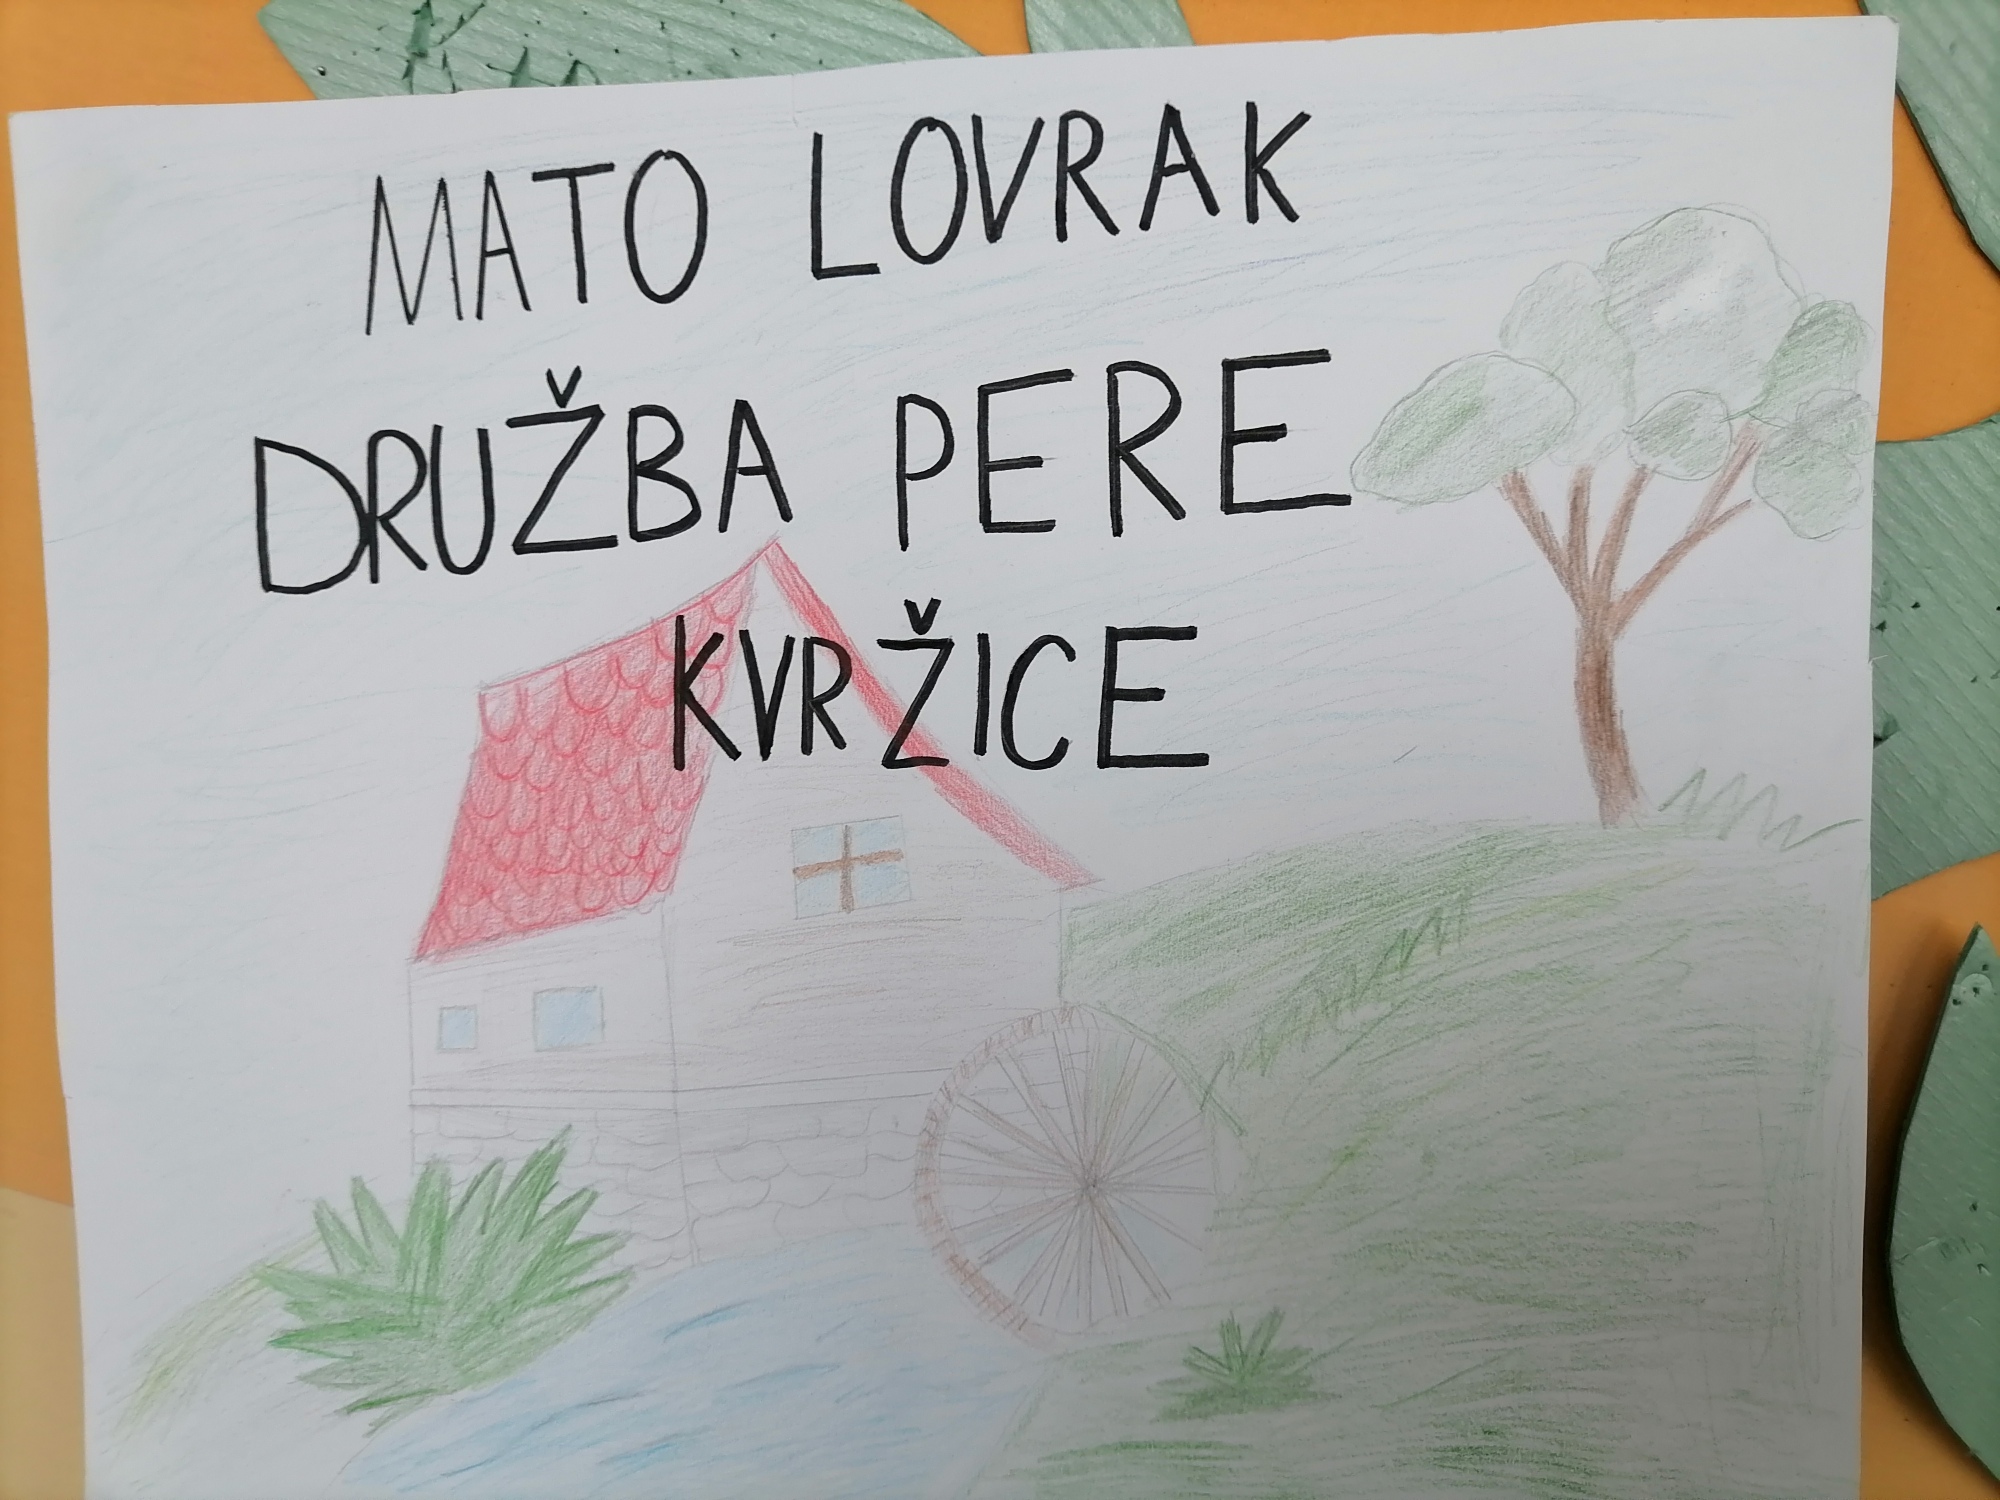 MATO LOVRAK
DRUŽBA PERE
KVRŽICE